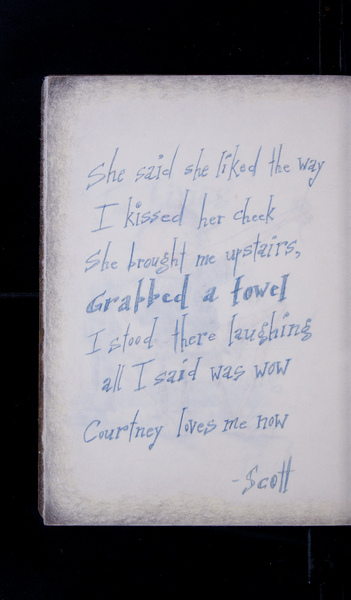 She said she liked the way
I kissed her cheek
She brought me upstairs,
Grabbed a towel
I stood there laughing
all I said was wow
Courtney loves me now
-Scott